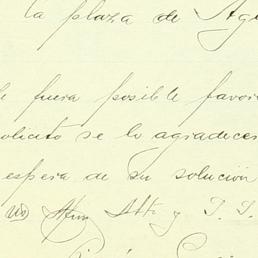 la plaza de Ag
fuera posible favor
olicito se lo agradecer
espera de su solución
Atto y S. S.